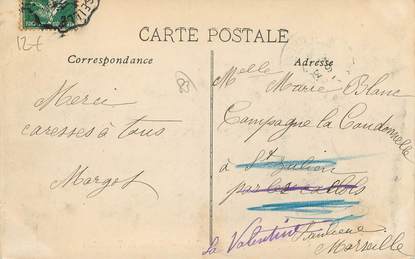 12 f
CARTE POSTALE
Correspondance
Adresse
83
Merci
caresses à tous
Margot
Melle Marie Blanc
Campagne la Coudonnelle
à St Julien
par les
La Valentine Banlieue
Marseille